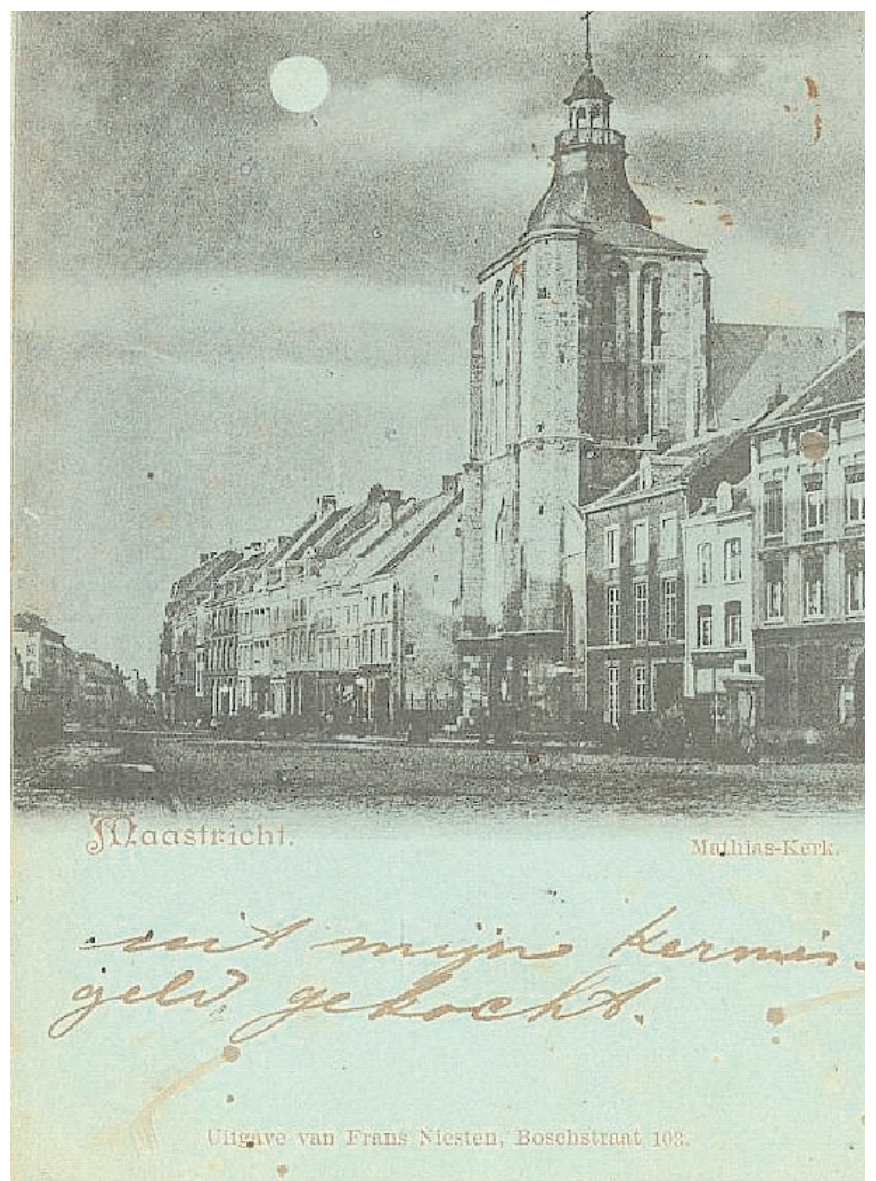 Maastricht.
Mathias-Kerk.
uit mijn kermis-
geld gekocht.
Uitgave van Frans Niesten, Boschstraat 108.